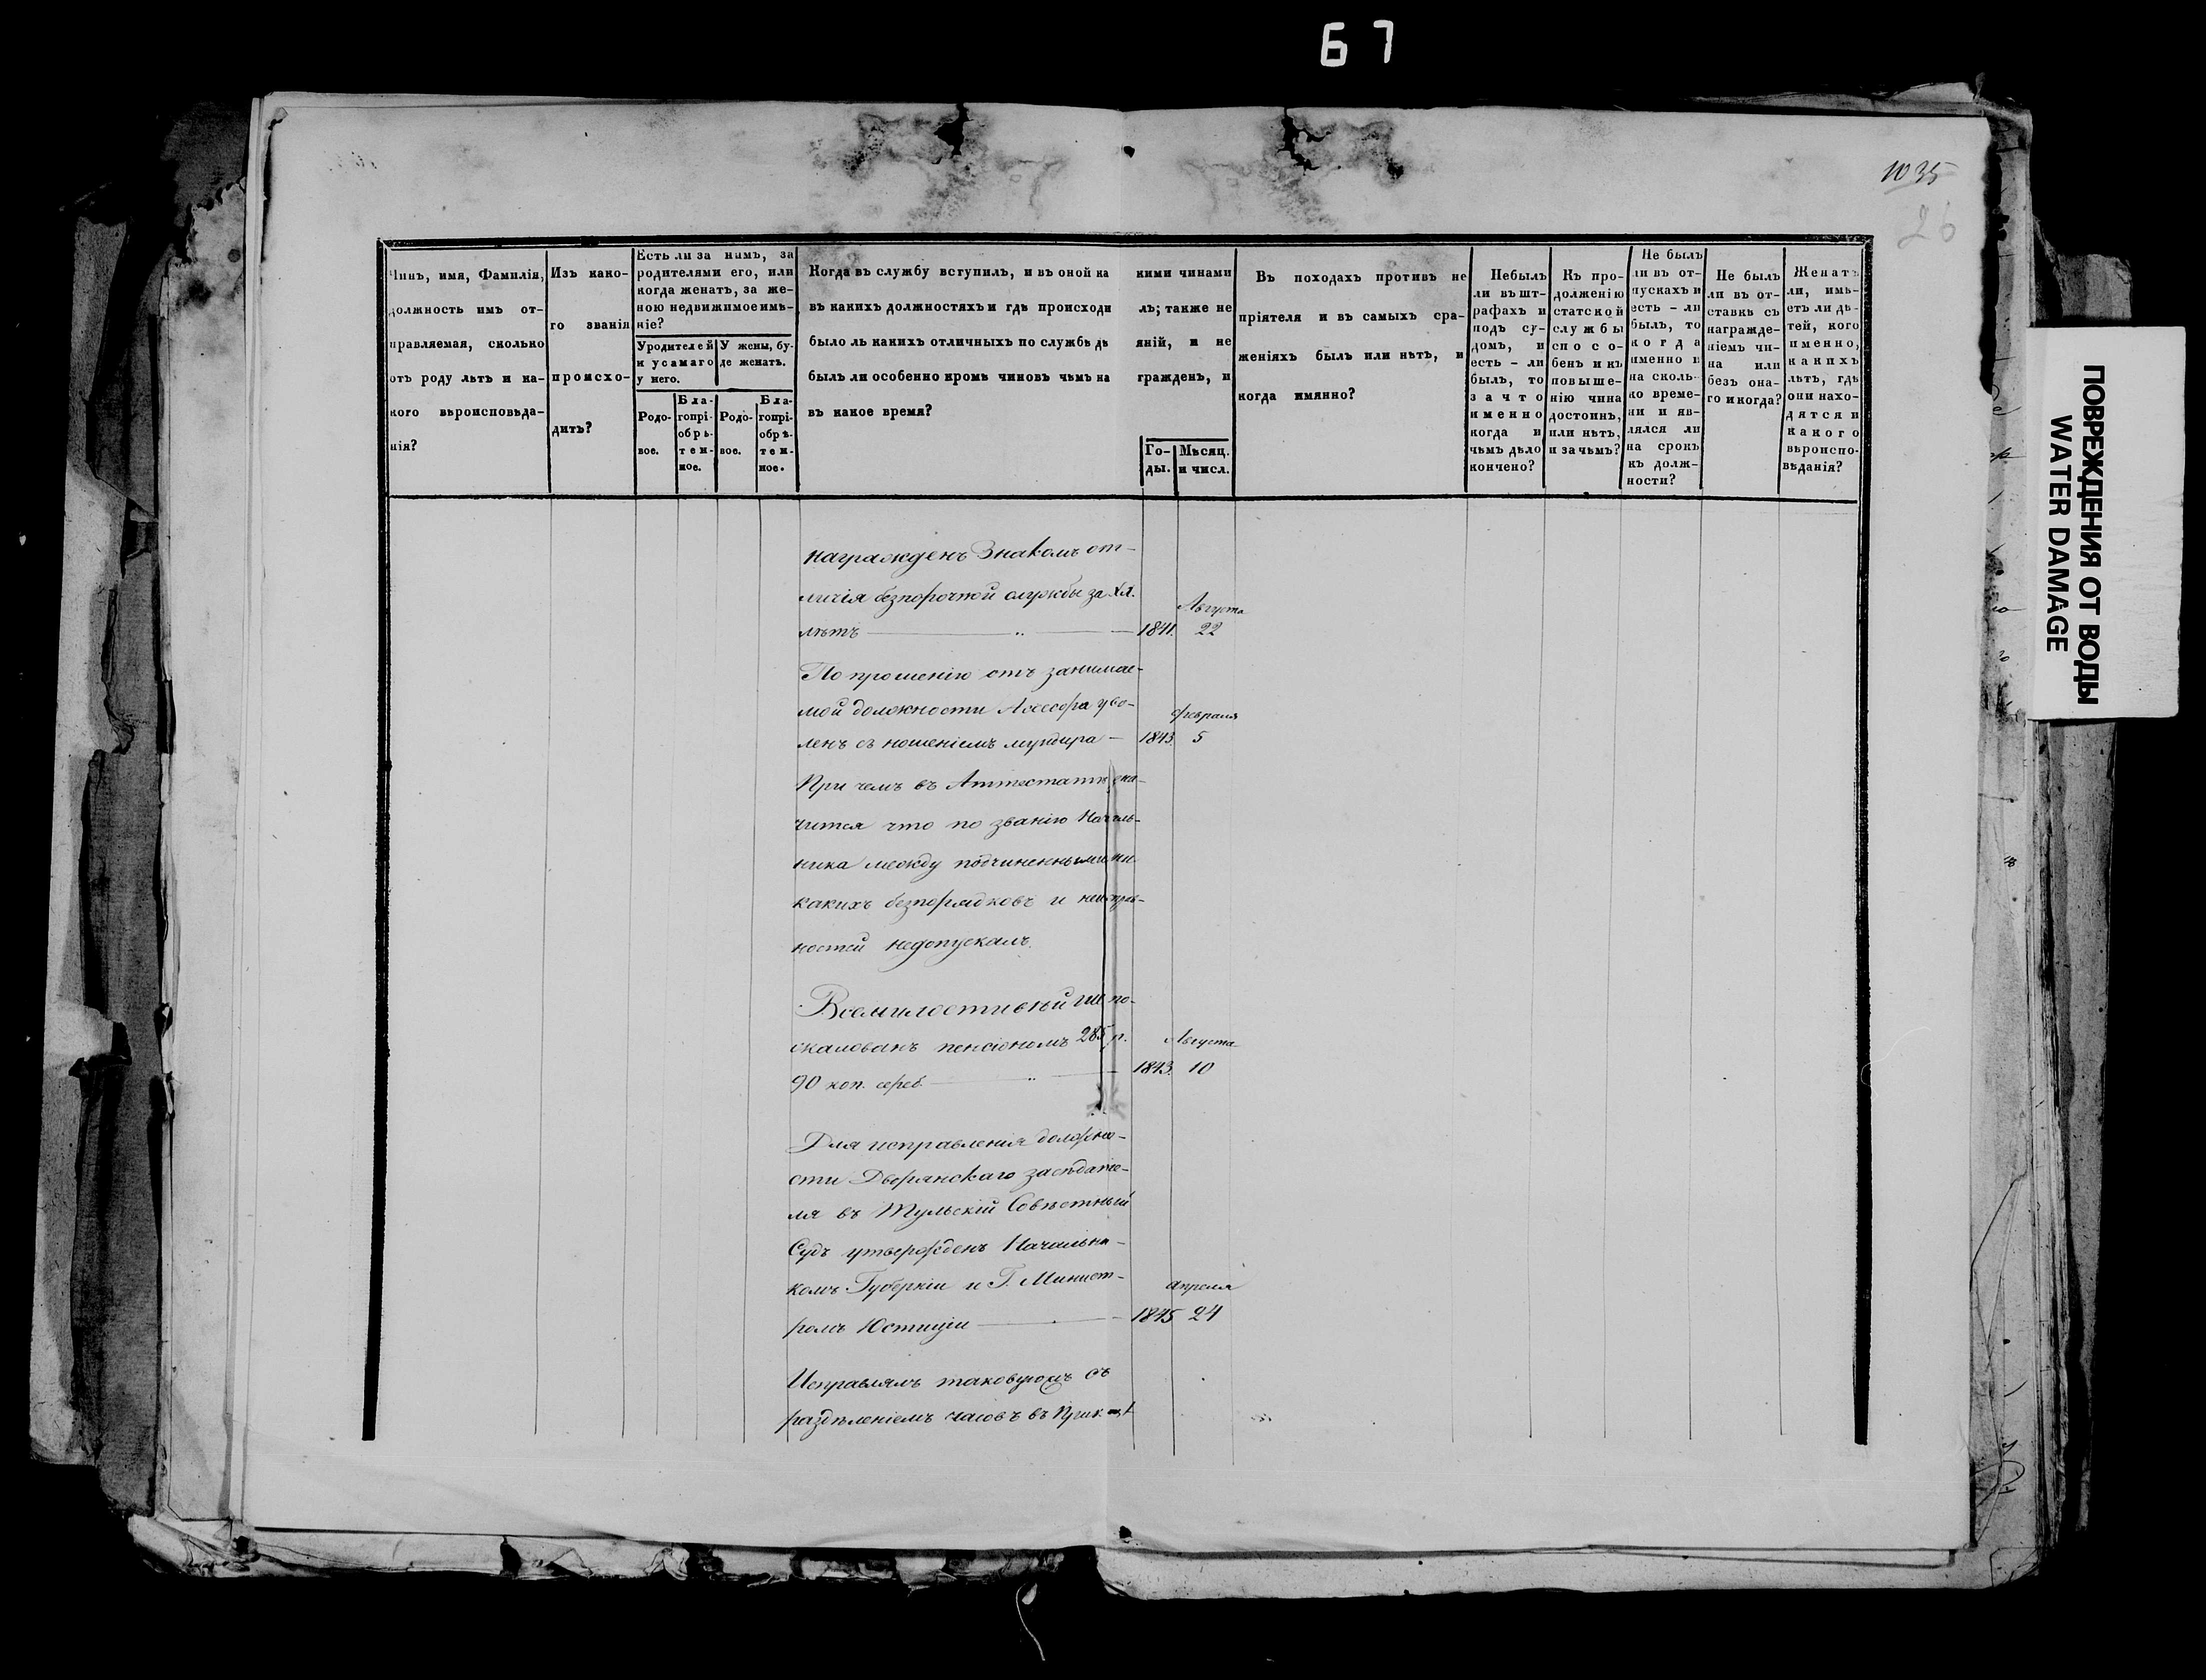 67
1035
26
Чинъ, имя, Фамилія,
должность имъ от-
правляемая, сколько
отъ роду лѣтъ и ка-
кого вѣроисповѣда-
нія?
Изъ како-
го званія
происхо-
дитъ?
Есть ли за нимъ, за
родителями его, или
когда женатъ, за же-
ною недвижимое имѣ-
ніе?
У родителей
и у самаго
у него.
У жены, бу-
де женатъ.
Родо-
вое.
Бла-
гопрі-
обрѣ-
тен-
ное.
Родо-
вое.
Бла-
гопрі-
обрѣ-
тен-
ное.
Когда въ службу вступилъ, и въ оной ка кими чинами
въ какихъ должностяхъ и гдѣ происходи лъ; также не
было ль какихъ отличныхъ по службѣ дѣ яній, и не
былъ ли особенно кромѣ чиновъ чѣмъ на гражденъ, и
въ какое время?
Го-
ды.
Мѣсяц.
и числ.
Въ походахъ противъ не
пріятеля и въ самыхъ сра-
женіяхъ былъ или нѣтъ, и
когда имянно?
Небылъ
ли въ шт-
рафахъ и
подъ су-
домъ, и
есть - ли
былъ, то
за что
именно
когда и
чѣмъ дѣло
кончено?
Къ про-
долженію
статской
службы
спосо-
бенъ и къ
повыше-
нію чина
достоинъ,
или нѣтъ,
и за чѣмъ?
Не былъ
ли въ от-
пускахъ и
есть - ли
былъ, то
когда
именно и
на сколь-
ко време-
ни и яв-
лялся ли
на срокъ
къ долж-
ности?
Не былъ
ли въ от-
ставкѣ съ
награжде-
ніемъ чи-
на или
безъ она-
го и когда?
Женатъ
ли, имѣ-
етъ ли дѣ-
тей, кого
именно,
какихъ
лѣтъ, гдѣ
они нахо-
дятся и
какого
вѣроиспо-
вѣданія?
награжденъ Знакомъ от-
личія безпорочной службы за
лѣтъ — 1841. Августа 22
По прошенію отъ занимае-
мой должности Ассесора уво-
ленъ съ ношеніемъ мундира — 1843 Февраля 5
При чемъ въ Аттестатѣ зна-
чится что по званію Началь-
ника между подчиненными ни-
какихъ безпорядковъ и неисправ-
ностей недопускалъ.
Всемилостивѣйше по-
жалованъ пенсіономъ 285 р.
90 коп. сереб. — 1843. Августа 10
Для исправленія должно-
сти Дворянскаго засѣдате-
ля въ Тульскій Совѣстный
Судъ утвержденъ Начальни-
комъ Губерніи и Г. Минист-
ромъ Юстиціи — 1845 Апреля 24
Исправлялъ таковую съ
раздѣленіемъ часовъ въ
ПОВРЕЖДЕНИЯ ОТ ВОДЫ
WATER DAMAGE